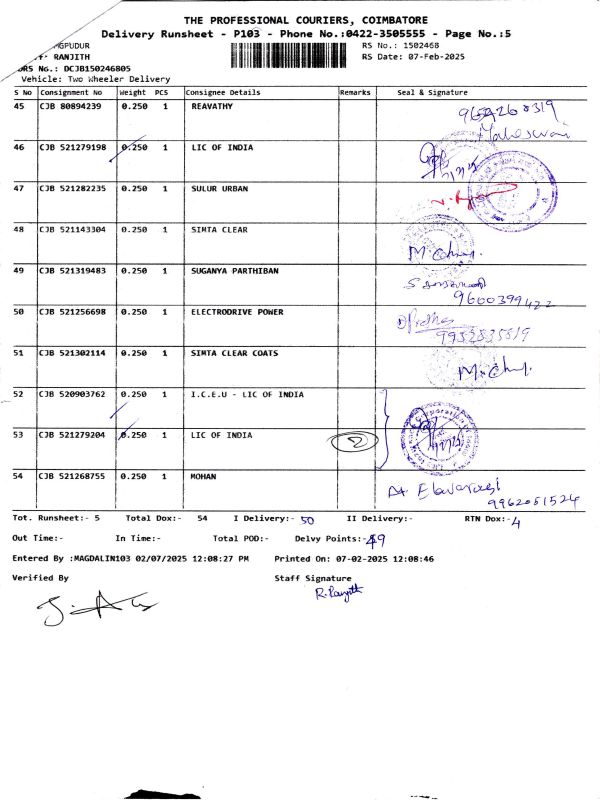 THE PROFESSIONAL COURIERS, COIMBATORE
Delivery Runsheet - P103 - Phone No.:0422-3505555 - Page No.:5
MGPUDUR
RANJITH
DRS No.: DCJB150246805
Vehicle: Two Wheeler Delivery
RS No.: 1502468
RS Date: 07-Feb-2025
S No Consignment No Weight PCS Consignee Details Remarks Seal & Signature
45 CJB 80894239 0.250 1 REAVATHY
Maheswari
46 CJB 521279198 0.250 1 LIC OF INDIA
47 CJB 521282235 0.250 1 SULUR URBAN
48 CJB 521143304 0.250 1 SIMTA CLEAR
49 CJB 521319483 0.250 1 SUGANYA PARTHIBAN
9600399422
50 CJB 521256698 0.250 1 ELECTRODRIVE POWER
9952835819
51 CJB 521302114 0.250 1 SIMTA CLEAR COATS
52 CJB 520903762 0.250 1 I.C.E.U - LIC OF INDIA
53 CJB 521279204 0.250 1 LIC OF INDIA 2
54 CJB 521268755 0.250 1 MOHAN
9962081524
Tot. Runsheet:- 5 Total Dox:- 54 I Delivery:- 50 II Delivery:- RTN Dox:- 4
Out Time:- In Time:- Total POD:- Delvy Points:- 49
Entered By :MAGDALIN103 02/07/2025 12:08:27 PM Printed On: 07-02-2025 12:08:46
Verified By Staff Signature
R. Ranjith